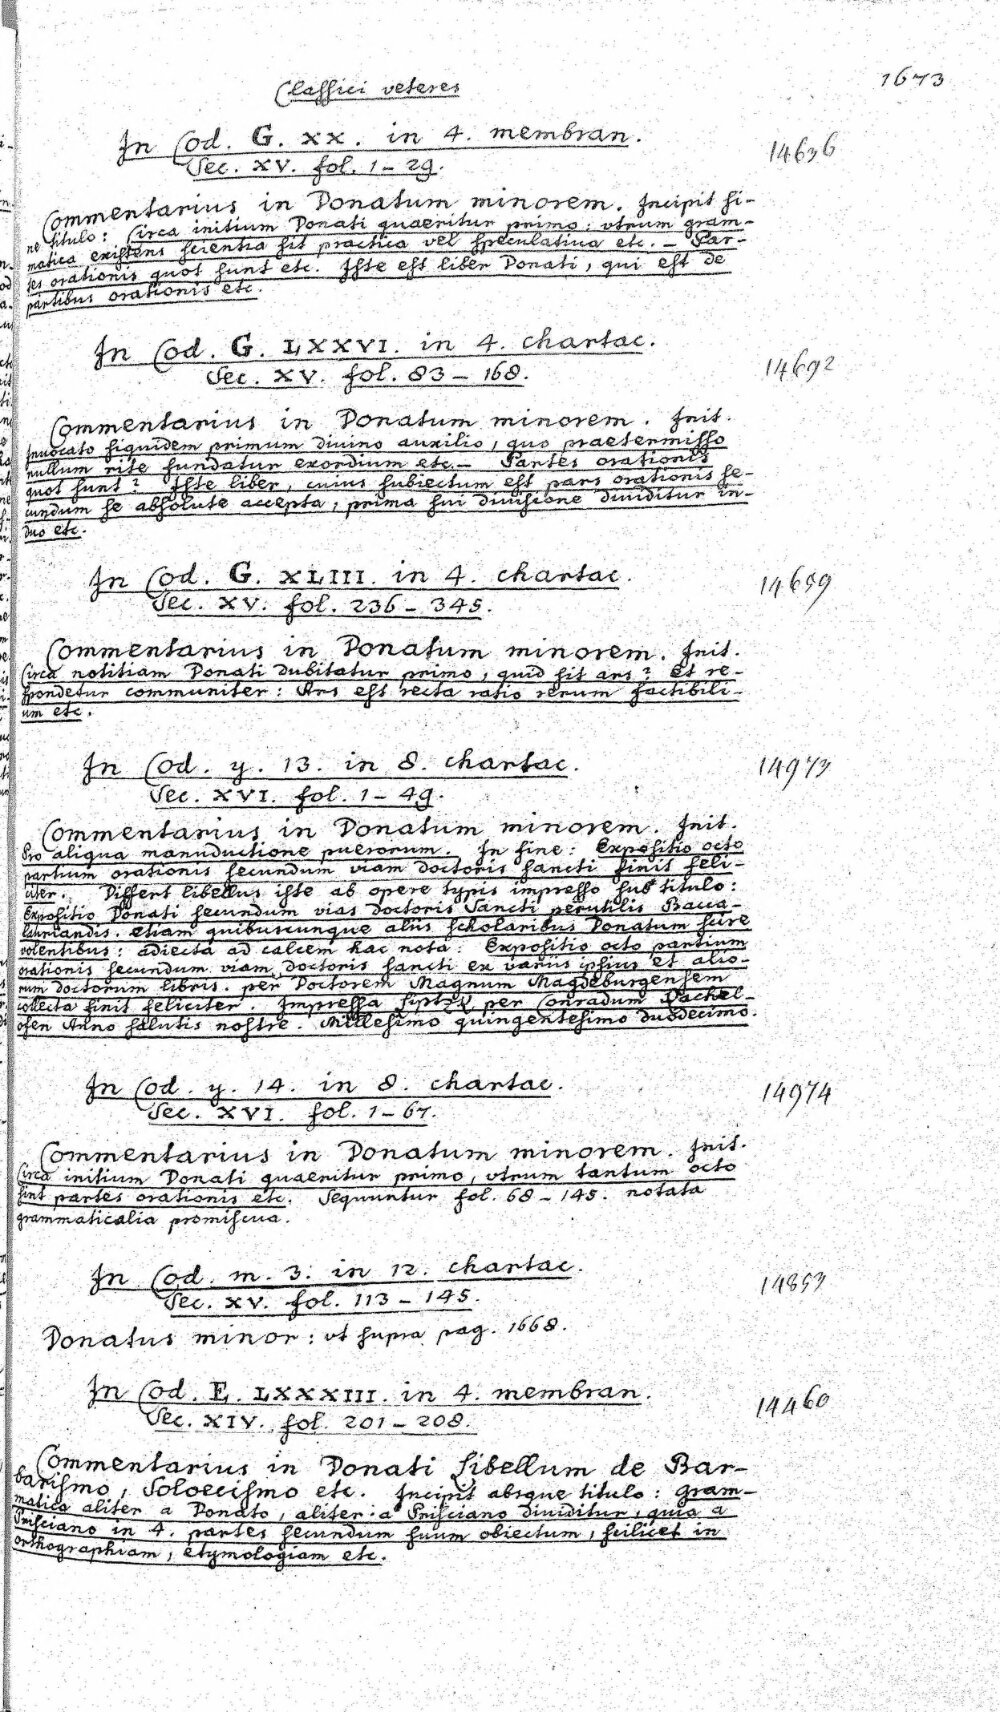 Classici veteres
1673
In Cod. G. XX. in 4. membran.
14636
Sec. XV. fol. 1-29.
Commentarius in Donatum minorem. Incipit si-
ne titulo: Circa initium Donati quaeritur primo: utrum gram-
matica existens scientia sit practica vel speculativa etc. - Par-
tes orationis quot sunt etc. Iste est liber Donati, qui est de
partibus orationis etc.
In Cod. G. LXXVI. in 4. chartac.
14692
Sec. XV. fol. 83-168.
Commentarius in Donatum minorem. Init.
Invocato siquidem primum divino auxilio, quo praetermisso
nullum rite fundatur exordium etc. - Partes orationis
quot sunt? Iste liber, cuius subiectum est pars orationis se-
cundum se absolute accepta, prima sui divisione dividitur in-
duo etc.
In Cod. G. XLIII. in 4. chartac.
14659
Sec. XV. fol. 236-345.
Commentarius in Donatum minorem. Init.
Circa notitiam Donati dubitatur primo, quid sit ars? Et re-
spondetur communiter: Ars est recta ratio rerum factibili-
um etc.
In Cod. y. 13. in 8. chartac.
14973
Sec. XVI. fol. 1-49.
Commentarius in Donatum minorem. Init.
Pro aliqua manuductione puerorum. In fine: Expositio octo
partium orationis secundum viam doctoris sancti finit feli-
citer. Differt libellus iste ab opere typis impresso sub titulo:
Expositio Donati secundum vias doctoris Sancti perutilis Bacca-
lauriandis. etiam quibuscunque aliis scholaribus Donatum scire
volentibus: adiecta ad calcem hac nota: Expositio octo partium
orationis secundum viam doctoris sancti ex variis ipsius et alio-
rum doctorum libris. per Doctorem Magnum Magdeburgensem
collecta finit feliciter. Impressa liptzk per Conradum Kachel-
ofen Anno salutis nostre. Millesimo quingentesimo duodecimo.
In Cod. y. 14. in 8. chartac.
14974
Sec. XVI. fol. 1-67.
Commentarius in Donatum minorem. Init.
Circa initium Donati quaeritur primo, utrum tantum octo
sint partes orationis etc. Sequuntur fol. 68-145. notata
grammaticalia promiscua.
In Cod. m. 3. in 12. chartac.
14853
Sec. XV. fol. 113-145.
Donatus minor: ut supra pag. 1668.
In Cod. E. LXXXIII. in 4. membran.
14460
Sec. XIV. fol. 201-208.
Commentarius in Donati libellum de Bar-
barismo, Soloecismo etc. Incipit absque titulo: Gram-
matica aliter a Donato, aliter a Prisciano dividitur, quia a
Prisciano in 4. partes secundum suum obiectum, scilicet in
orthographiam, etymologiam etc.